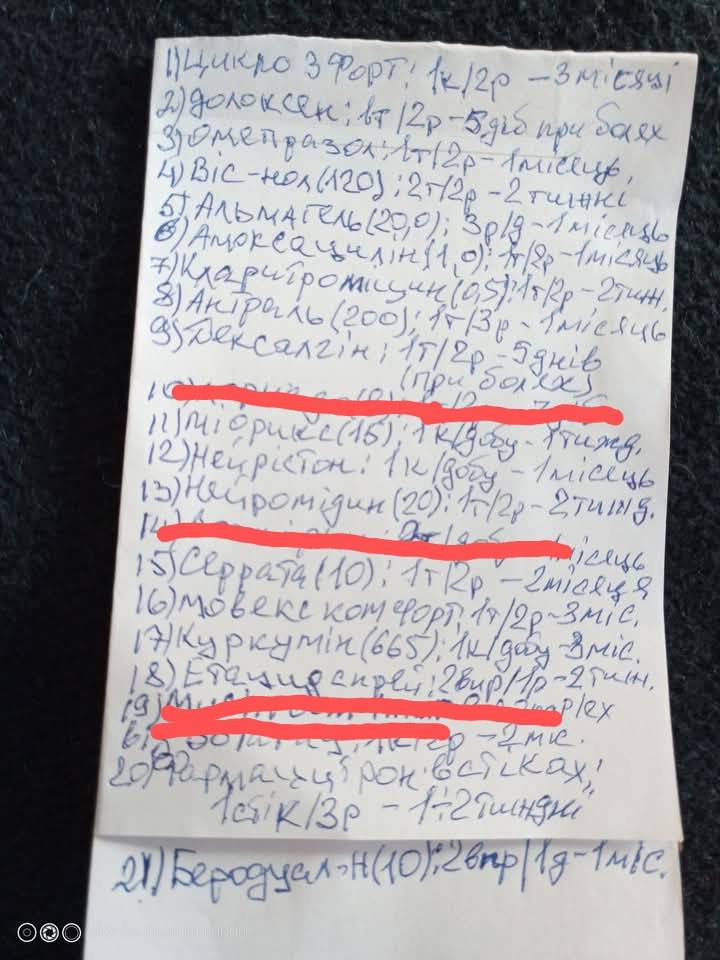 1) Цикло 3 Форт: 1к/2р – 3 місяці
2) Долоксен: 1т/2р – 5 діб при болях
3) Омепразол: 1т/2р – 1 місяць,
4) Віс-нол (120): 2т/2р – 2 тижні
5) Альмагель (20,0); 3р/д – 1 місяць
6) Амоксацилін (1,0): 1т/2р – 1 місяць
7) Кларитромицин (0,5): 1т/2р – 2 тиж.
8) Антраль (200); 1т/3р – 1 місяць
9) Дексалгін: 1т/2р – 5 днів
(при болях)
10)
11) Мідрикс (15): 1к/добу – 1 тижд.
12) Нейрістон: 1к/добу – 1 місяць
13) Нейромідин (20): 1т/2р – 2 тижд.
14) місяць
15) Серрата (10): 1т/2р – 2 місяця
16) Мовекс комфорт: 1т/2р – 3 міс.
17) Куркумін (665): 1к/добу – 3 міс.
18) спрей: 2впр/1р – 2 тиж.
19)
– 2 мк.
20) Фармацитрон в стіках;
1 стік/3р – 1÷2 тиждні
21) Беродуал-Н (10): 2впр/1д – 1 міс.